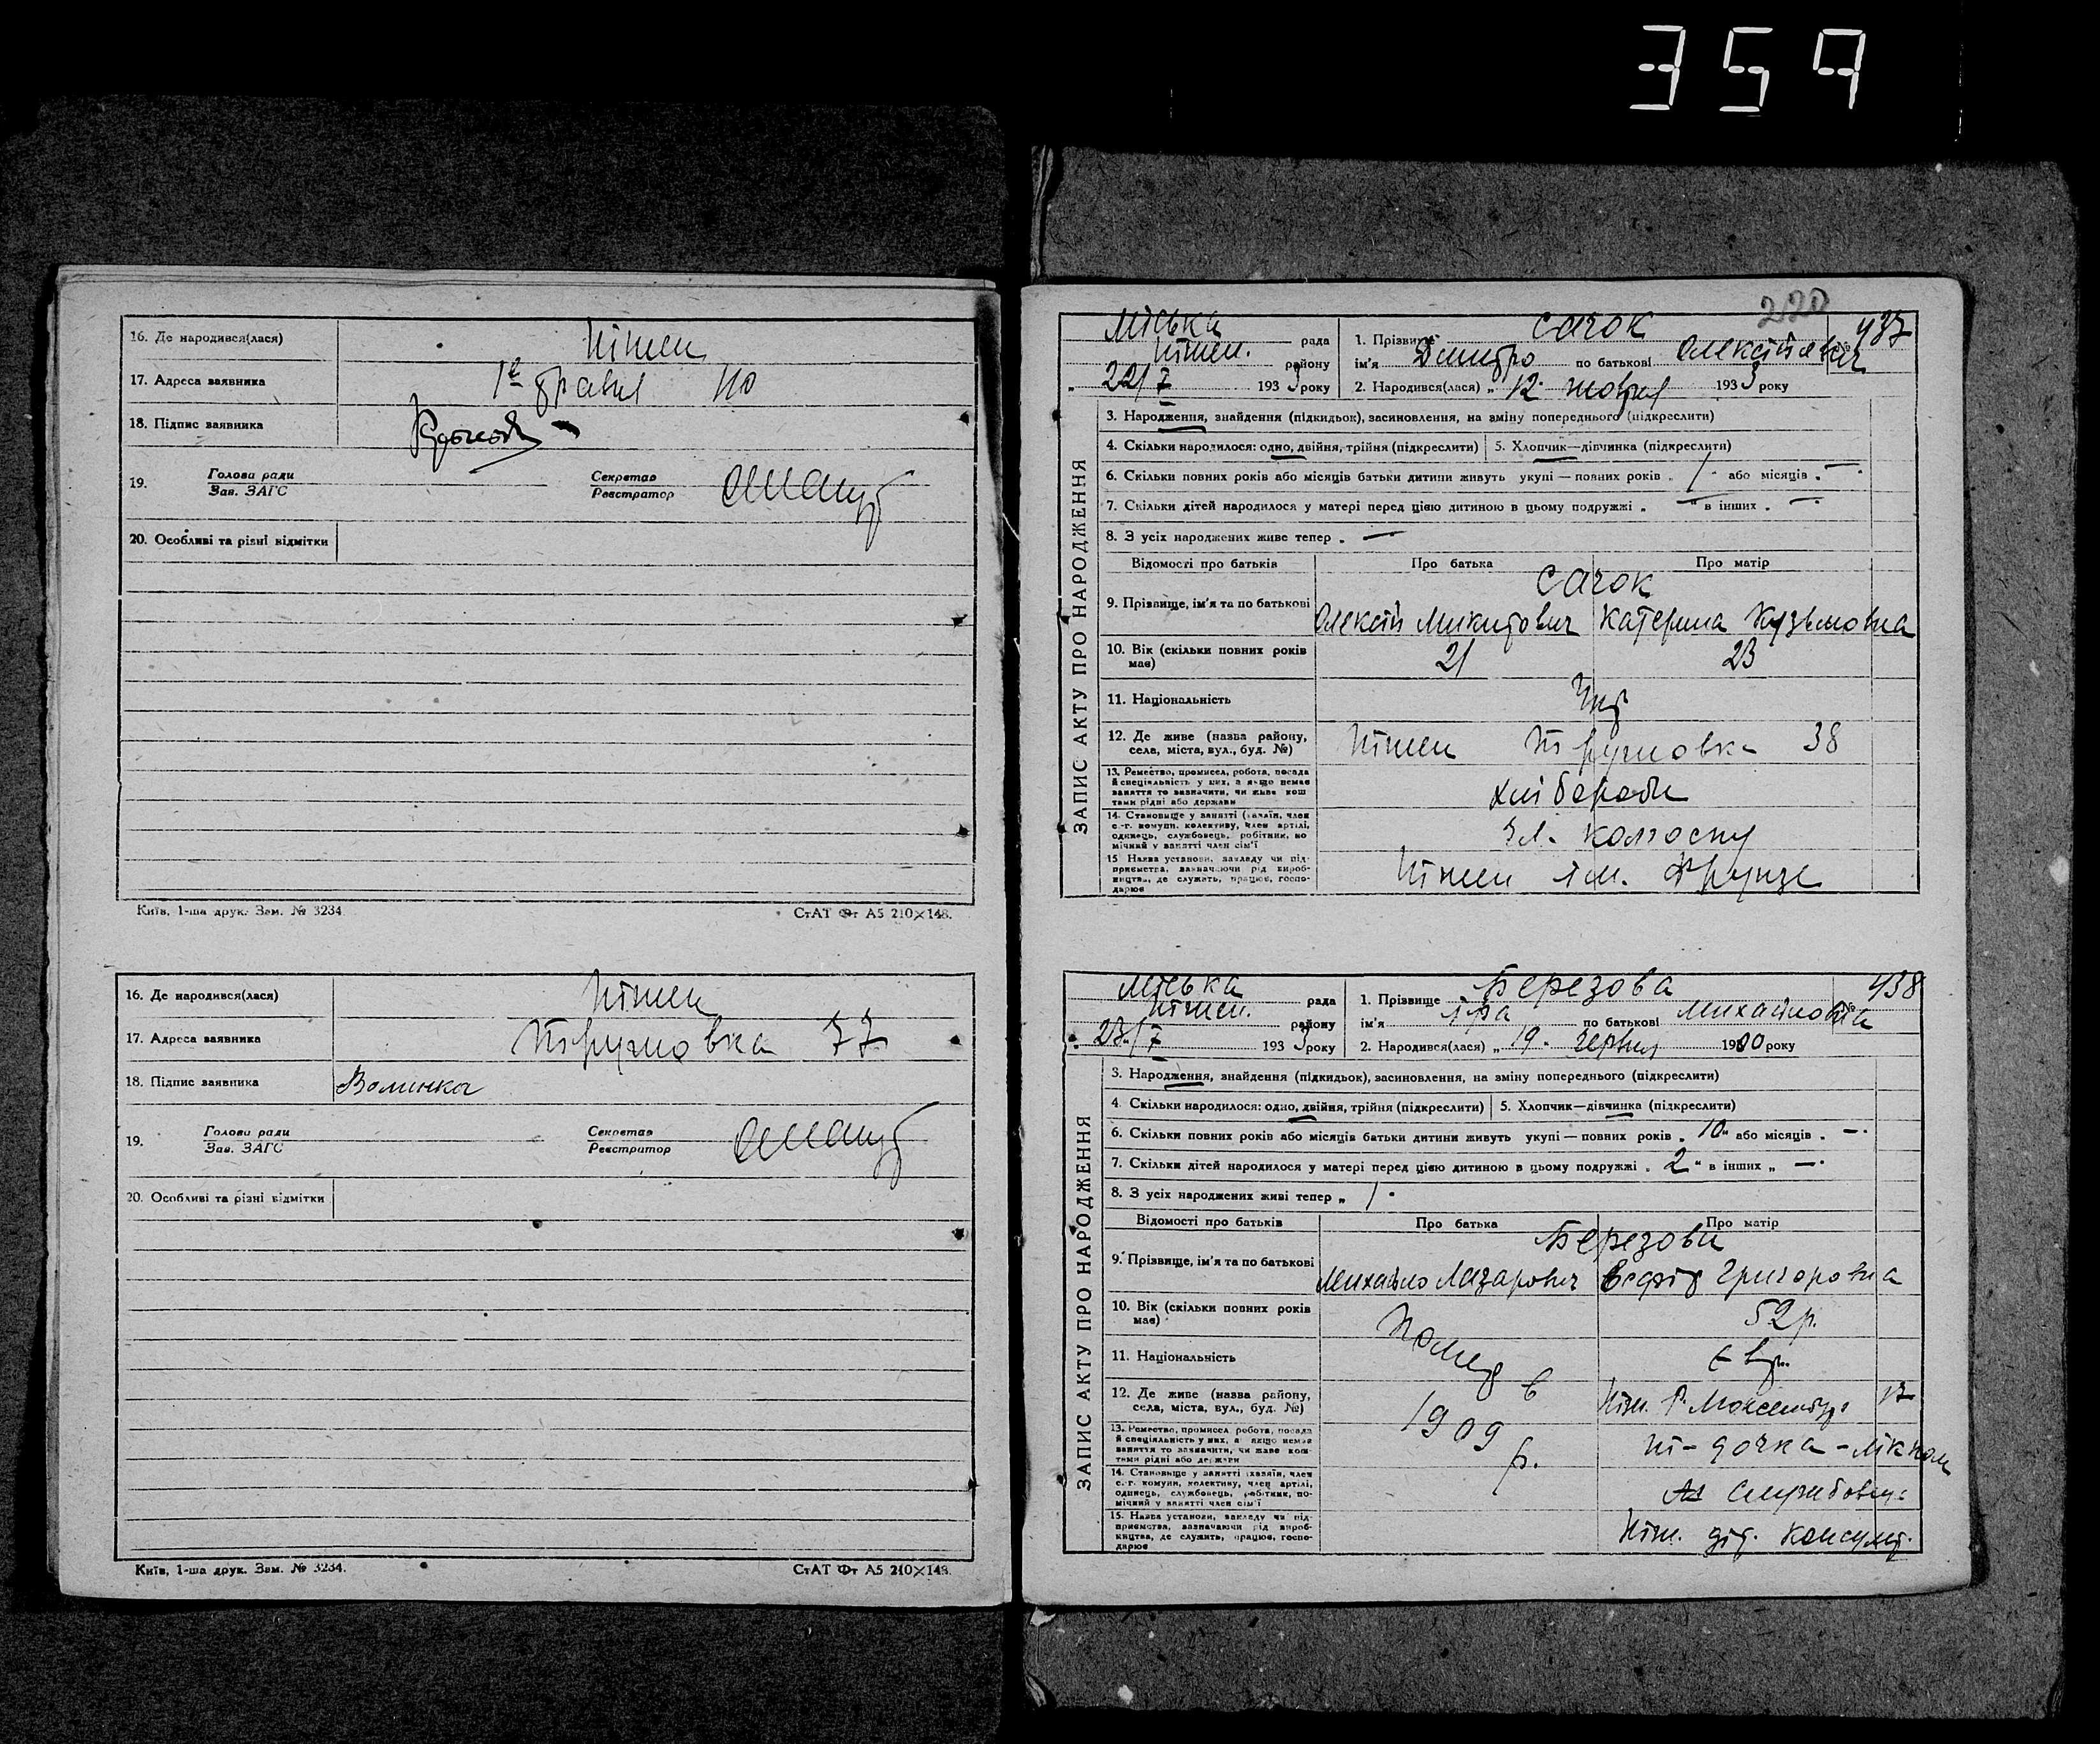 359
16. Де народився(лася) Ніжен
17. Адреса заявника 1е травня 110
18. Підпис заявника
19. Голова ради Секретар
Зав. ЗАГС Реєстратор
20. Особливі та різні відмітки
Київ, 1-ша друк. Зам. № 3234. СтАТ Фт А5 210×148.
16. Де народився(лася) Ніжен
17. Адреса заявника 77
18. Підпис заявника Волинка
19. Голова ради Секретар
Зав. ЗАГС Реєстратор
20. Особливі та різні відмітки
Київ, 1-ша друк. Зам. № 3234. СтАТ Фт А5 210×148.
220
ЗАПИС АКТУ ПРО НАРОДЖЕННЯ
Міська рада 1. Прізвище Сачок № 437
Ніжен. району ім'я Дмитро по батькові Олексійович
„ 22/7 1933 року 2. Народився(лася) „ 12. жовтня 1933 року
3. Народження, знайдення (підкидьок), засиновлення, на зміну попереднього (підкреслити)
4. Скільки народилося: одно, двійня, трійня (підкреслити) 5. Хлопчик—дівчинка (підкреслити)
6. Скільки повних років або місяців батьки дитини живуть укупі — повних років „ 1 „ або місяців „ —
7. Скільки дітей народилося у матері перед цією дитиною в цьому подружжі „ — „ в інших „ —
8. З усіх народжених живе тепер „ —
Відомості про батьків Про батька Про матір
Сачок
9. Прізвище, ім'я та по батькові Олексій Микитович Катерина Кузьмовна
10. Вік (скільки повних років має) 21 23
11. Національність Укр
12. Де живе (назва району, села, міста, вул., буд. №) Ніжен 38
13. Ремество, промисел, робота, посада й спеціяльність у них, а якщо немає заняття то зазначити, чи живе коштами рідні або держави хлібороби
14. Становище у занятті (хазяїн, член с.-г. комуни, колективу, член артілі, одинець, службовець, робітник, помічний у занятті член сім'ї чл. колгоспу
15 Назва установи, закладу чи підприємства, зазначаючи рід виробництва, де служить, працює, господарює Ніжен ім. Фрунзе
ЗАПИС АКТУ ПРО НАРОДЖЕННЯ
Міська рада 1. Прізвище Березова № 438
Ніжен. району ім'я Іра по батькові Михайловна
„ 23/7 1933 року 2. Народився(лася) „ 19. червня 1900 року
3. Народження, знайдення (підкидьок), засиновлення, на зміну попереднього (підкреслити)
4. Скільки народилося: одно, двійня, трійня (підкреслити) 5. Хлопчик—дівчинка (підкреслити)
6. Скільки повних років або місяців батьки дитини живуть укупі — повних років „ 10 „ або місяців „ —
7. Скільки дітей народилося у матері перед цією дитиною в цьому подружжі „ 2 „ в інших „ —
8. З усіх народжених живі тепер „ 1
Відомості про батьків Про батька Про матір
Березови
9. Прізвище, ім'я та по батькові Михайло Лазарович Григоровна
10. Вік (скільки повних років має) Помер в 1909 р. 52 р.
11. Національність Євр.
12. Де живе (назва району, села, міста, вул., буд. №) Ніж.
13. Ремество, промисел робота, посада й спеціяльність у них, а якщо немає заняття то зазначити, чи живе коштами рідні або держави дочка
14. Становище у занятті (хазяїн, член с.-г. комуни, колективу, член артілі, одинець, службовець, робітник, помічний у занятті член сім'ї
15. Назва установи, закладу чи підприємства, зазначаючи рід виробництва, де служить, працює, господарює Ніж. дит. консульт.